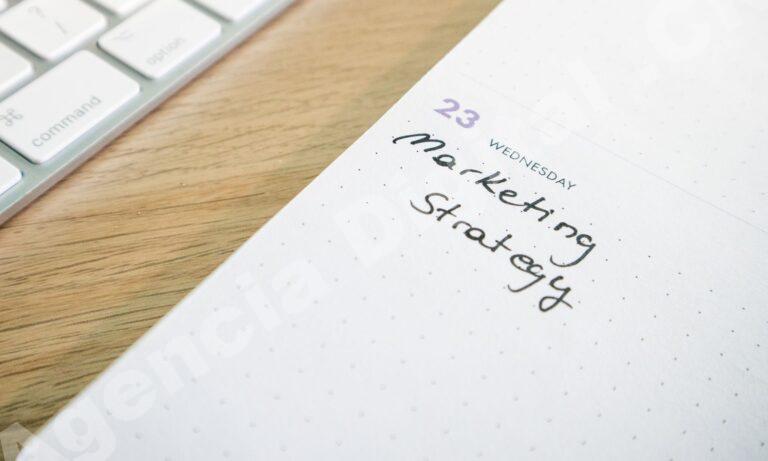 ?
option
⌘
command
23
WEDNESDAY
Marketing
Strategy
Agencia Digital